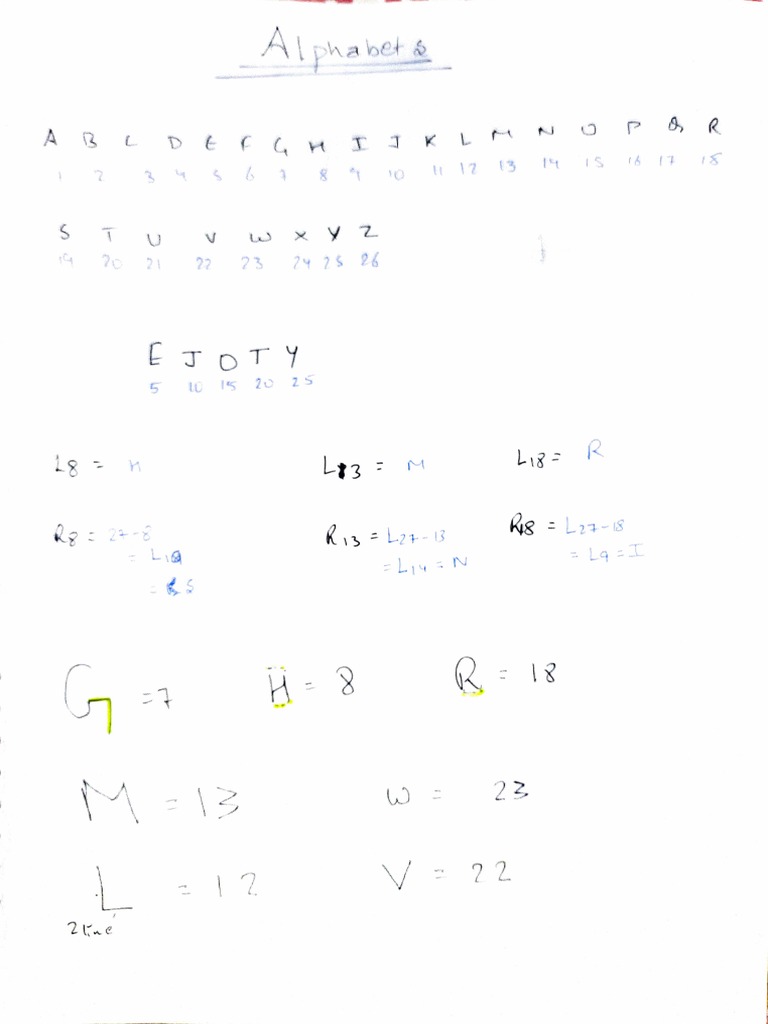 Alphabets
A B C D E F G H I J K L M N O P Q R
1 2 3 4 5 6 7 8 9 10 11 12 13 14 15 16 17 18
S T U V W X Y Z
19 20 21 22 23 24 25 26
E J O T Y
5 10 15 20 25
L8 = H L13 = M L18 = R
R8 = 27-8 R13 = L27-13 R18 = L27-18
= L19 = L14 = N = L9 = I
= S
G = 7 H = 8 R = 18
M = 13 W = 23
L = 12 V = 22
2 line